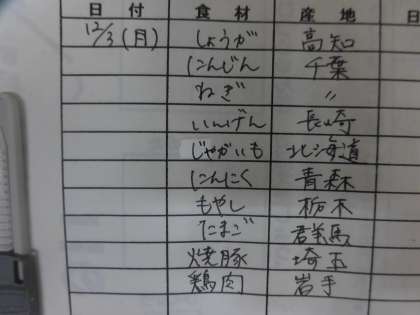 日 付 食 材 産 地 日
12/3(月) しょうが 高知
にんじん 千葉
ねぎ 〃
いんげん 長崎
じゃがいも 北海道
にんにく 青森
もやし 栃木
たまご 群馬
焼豚 埼玉
鶏肉 岩手